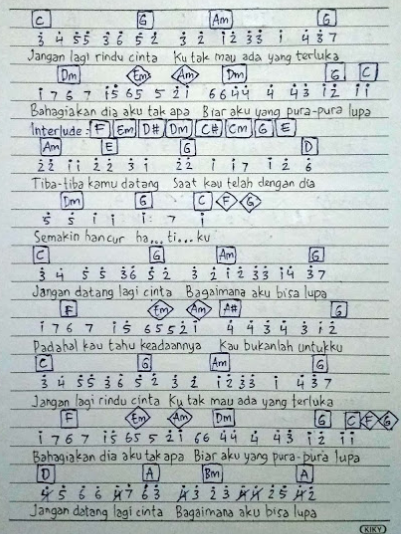 C G Am G
3 4 5 5 3 6 5 2 3 2 1 2 3 3 1 4 3 7
Jangan lagi rindu cinta Ku tak mau ada yang terluka
Dm Em Am Dm G C
1 7 6 7 1 5 6 5 5 2 1 6 6 4 4 4 4 3 1 2 1 1
Bahagiakan dia aku tak apa Biar aku yang pura-pura lupa
Interlude: F Em D# Dm C# Cm G E
Am E G D
2 2 1 1 2 2 3 1 2 2 1 1 7 1 2 6
Tiba-tiba kamu datang Saat kau telah dengan dia
Dm G C F G
5 5 1 1 1 7 1
Semakin hancur ha... ti... ku
C G Am G
3 4 5 5 3 6 5 2 3 2 1 2 3 3 1 4 3 7
Jangan datang lagi cinta Bagaimana aku bisa lupa
F Em Am A# G
1 7 6 7 1 5 6 5 5 2 1 4 4 3 4 3 1 2
Padahal kau tahu keadaannya Kau bukanlah untukku
C G Am G
3 4 5 5 3 6 5 2 3 2 1 2 3 3 1 4 3 7
Jangan lagi rindu cinta Ku tak mau ada yang terluka
F Em Am Dm G C F G
1 7 6 7 1 5 6 5 5 2 1 6 6 4 4 4 4 3 1 2 1 1
Bahagiakan dia aku tak apa Biar aku yang pura-pura lupa
D A Bm A
4 5 6 6 4 7 6 3 4 3 2 3 4 4 2 5 4 2
Jangan datang lagi cinta Bagaimana aku bisa lupa
KIKY